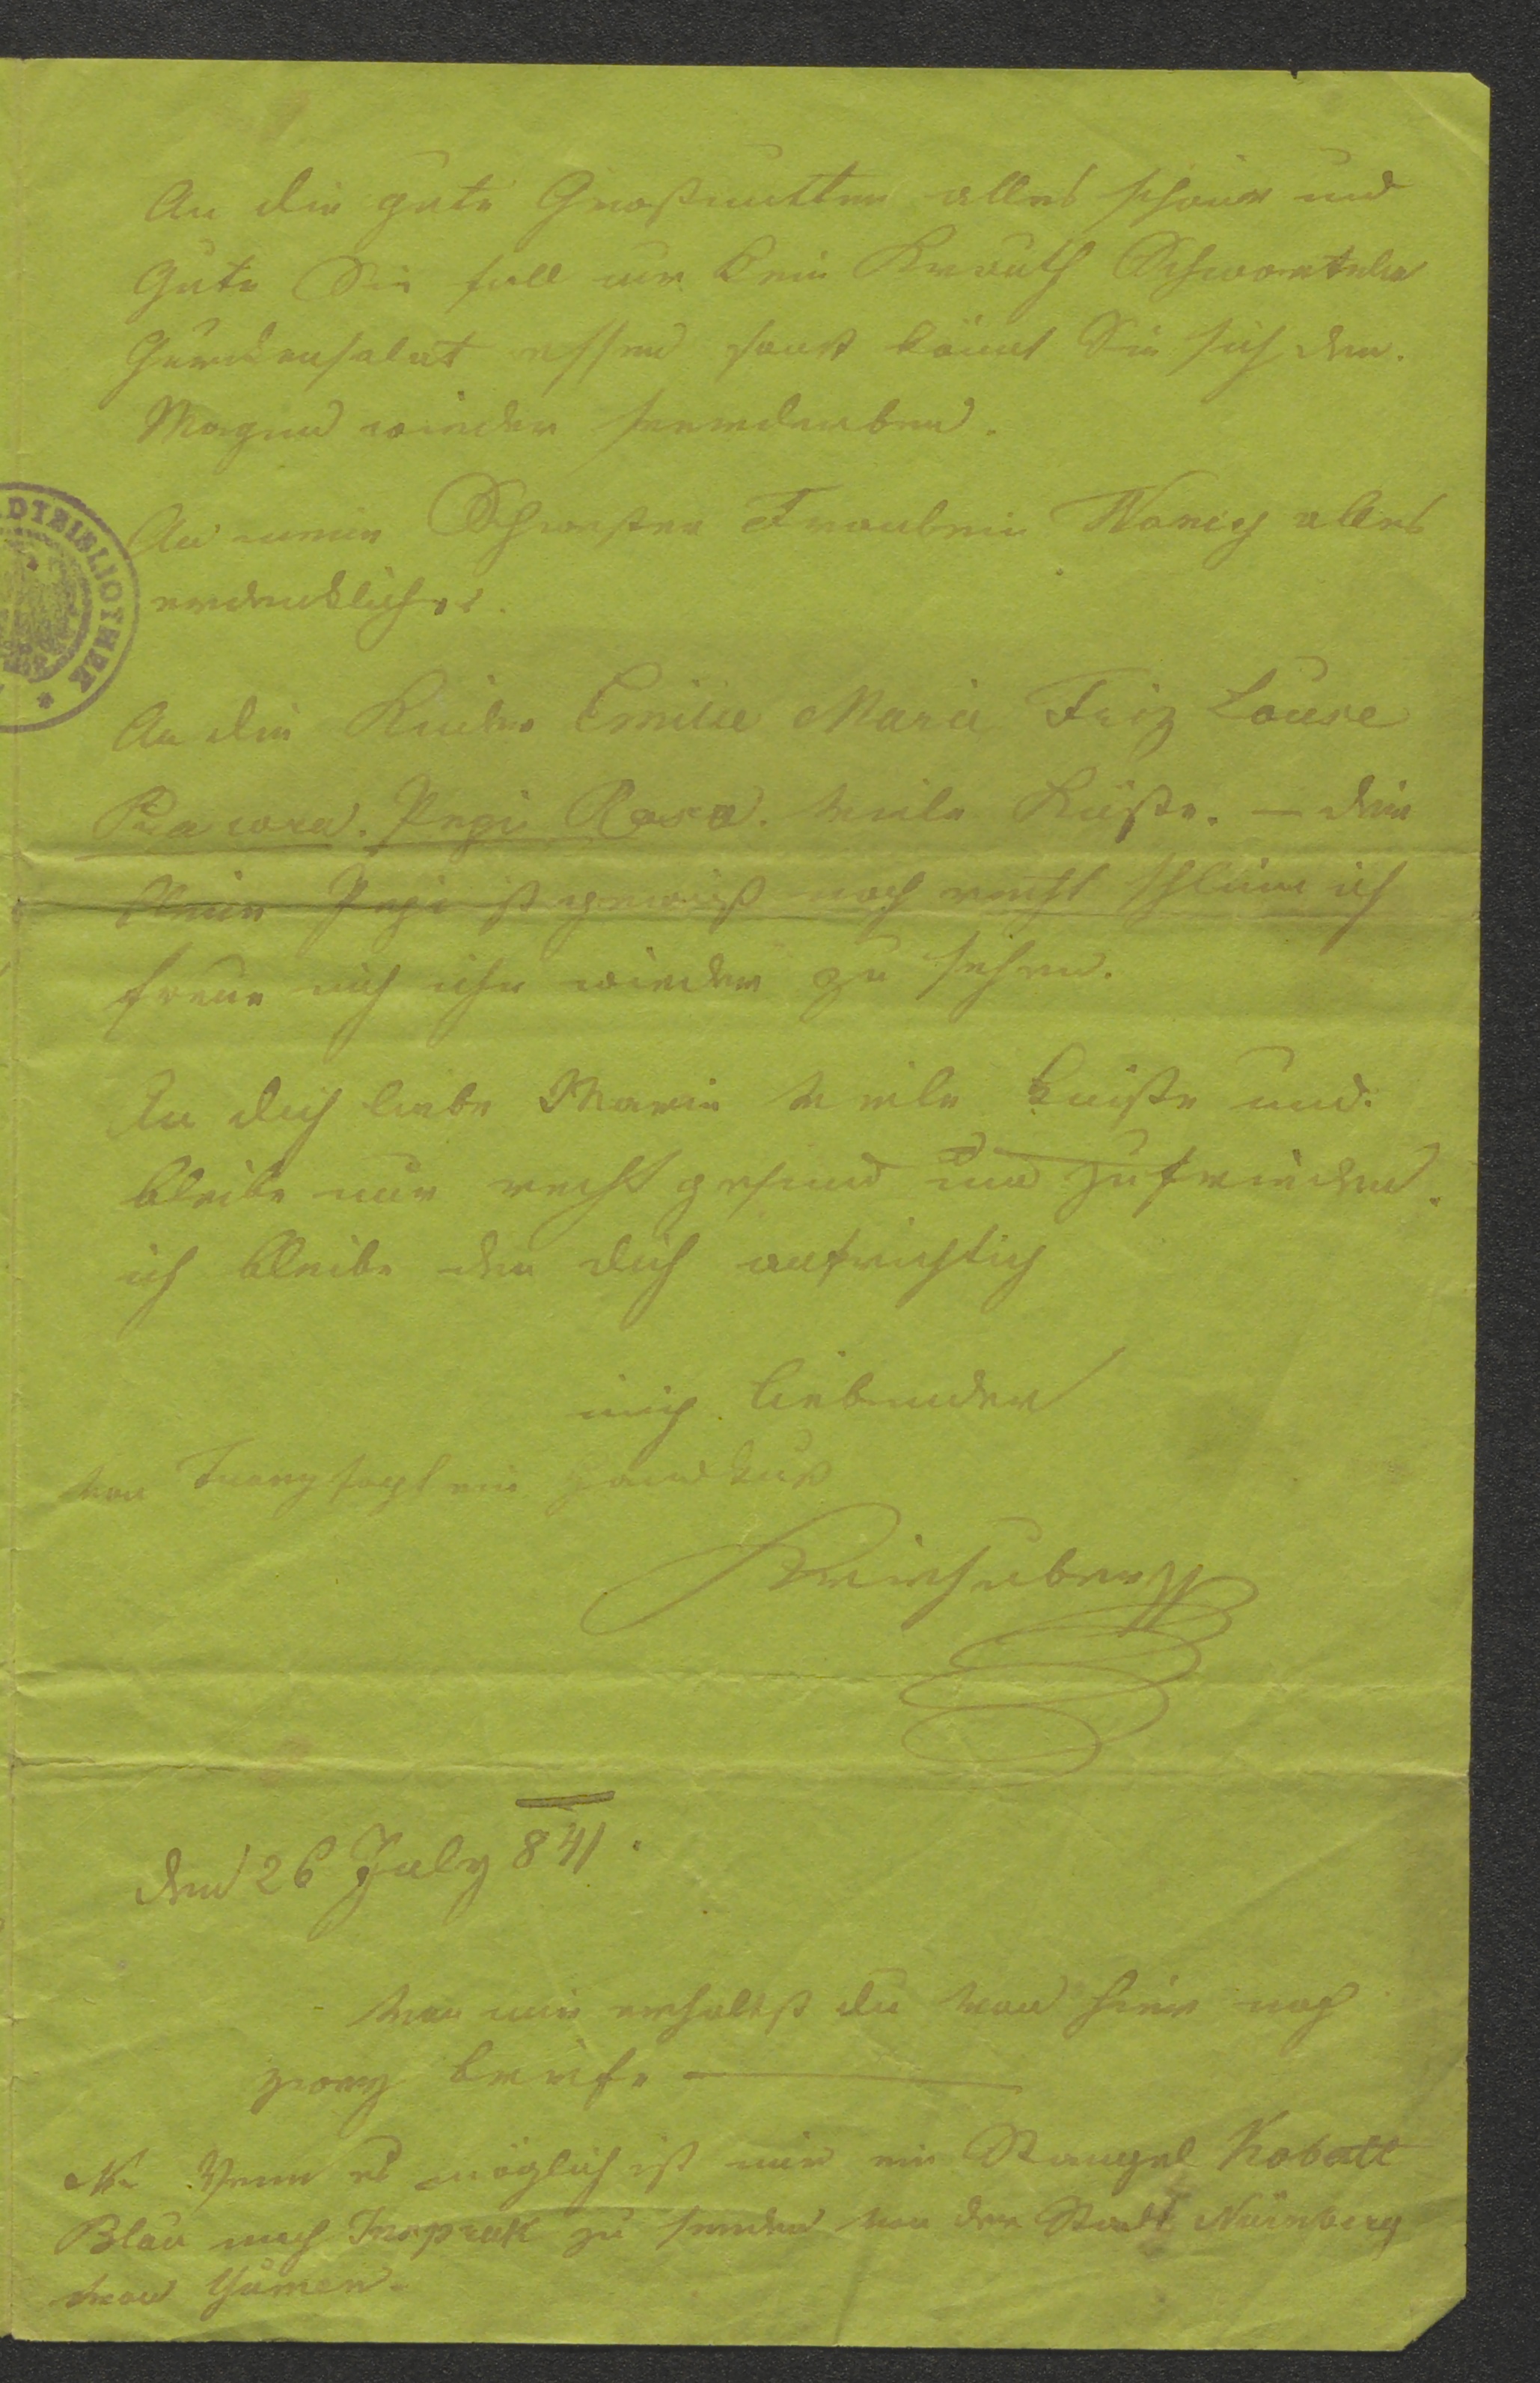 An die gute Großmutter alles schöne und
Gute Sie soll nur kein Krauth Schwarteln
Gurkensalat essen sonst könnt Sie sich den
Magen wieder verderben.
An meine Schwester Fraulein Wanig alles
erdenkliches.
An die Kinder Emilie Marie Friz Louise
Pepi Rosa. viele Küße. — die
kleine Pepi ist gewiß noch recht schlim ich
freue mich ihr wieder zu sehen.
An dich liebe Marie viele Küße und
bleibe nur recht gesund und zufrieden.
ich bleibe der dich aufrichtig
liebender
von Franz ein Handkuß
Kriehuber
DTBIBLIOTHEK
den 26 July 841.
von mir erhaltst du von hier noch
zwey briefe —
NB. Wenn es möglich ist mir ein Stangel Kobalt
Blau nach Insprukk zu senden von der Stadt Nürnberg